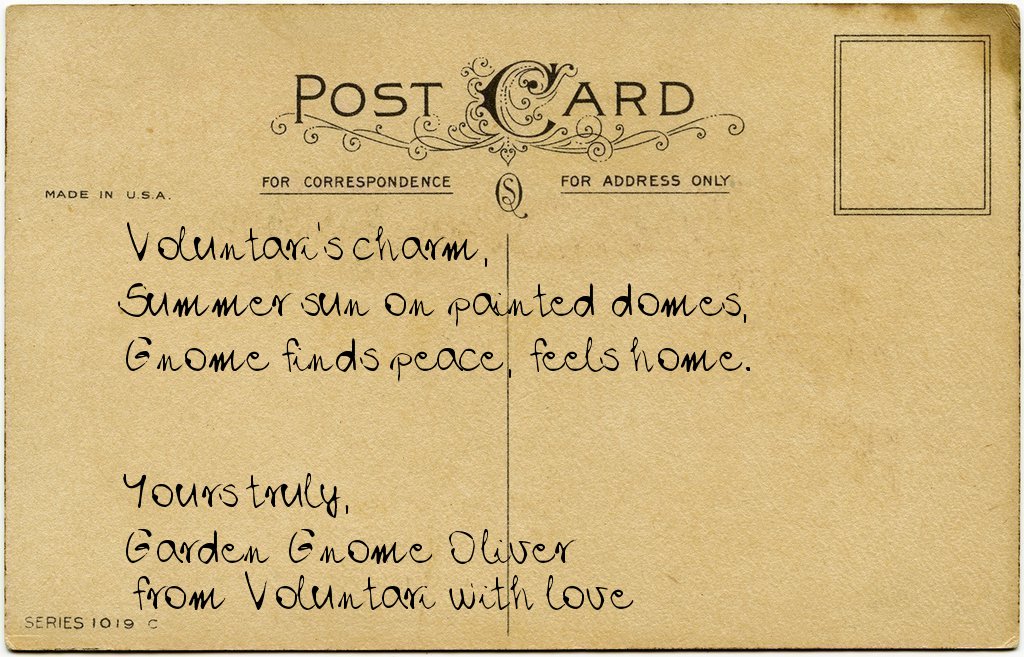 POST CARD
FOR CORRESPONDENCE
FOR ADDRESS ONLY
MADE IN U.S.A.
Voluntari's charm,
Summer sun on painted domes,
Gnome finds peace, feels home.
Yours truly,
Garden Gnome Oliver
from Voluntari with love
SERIES 1019 C